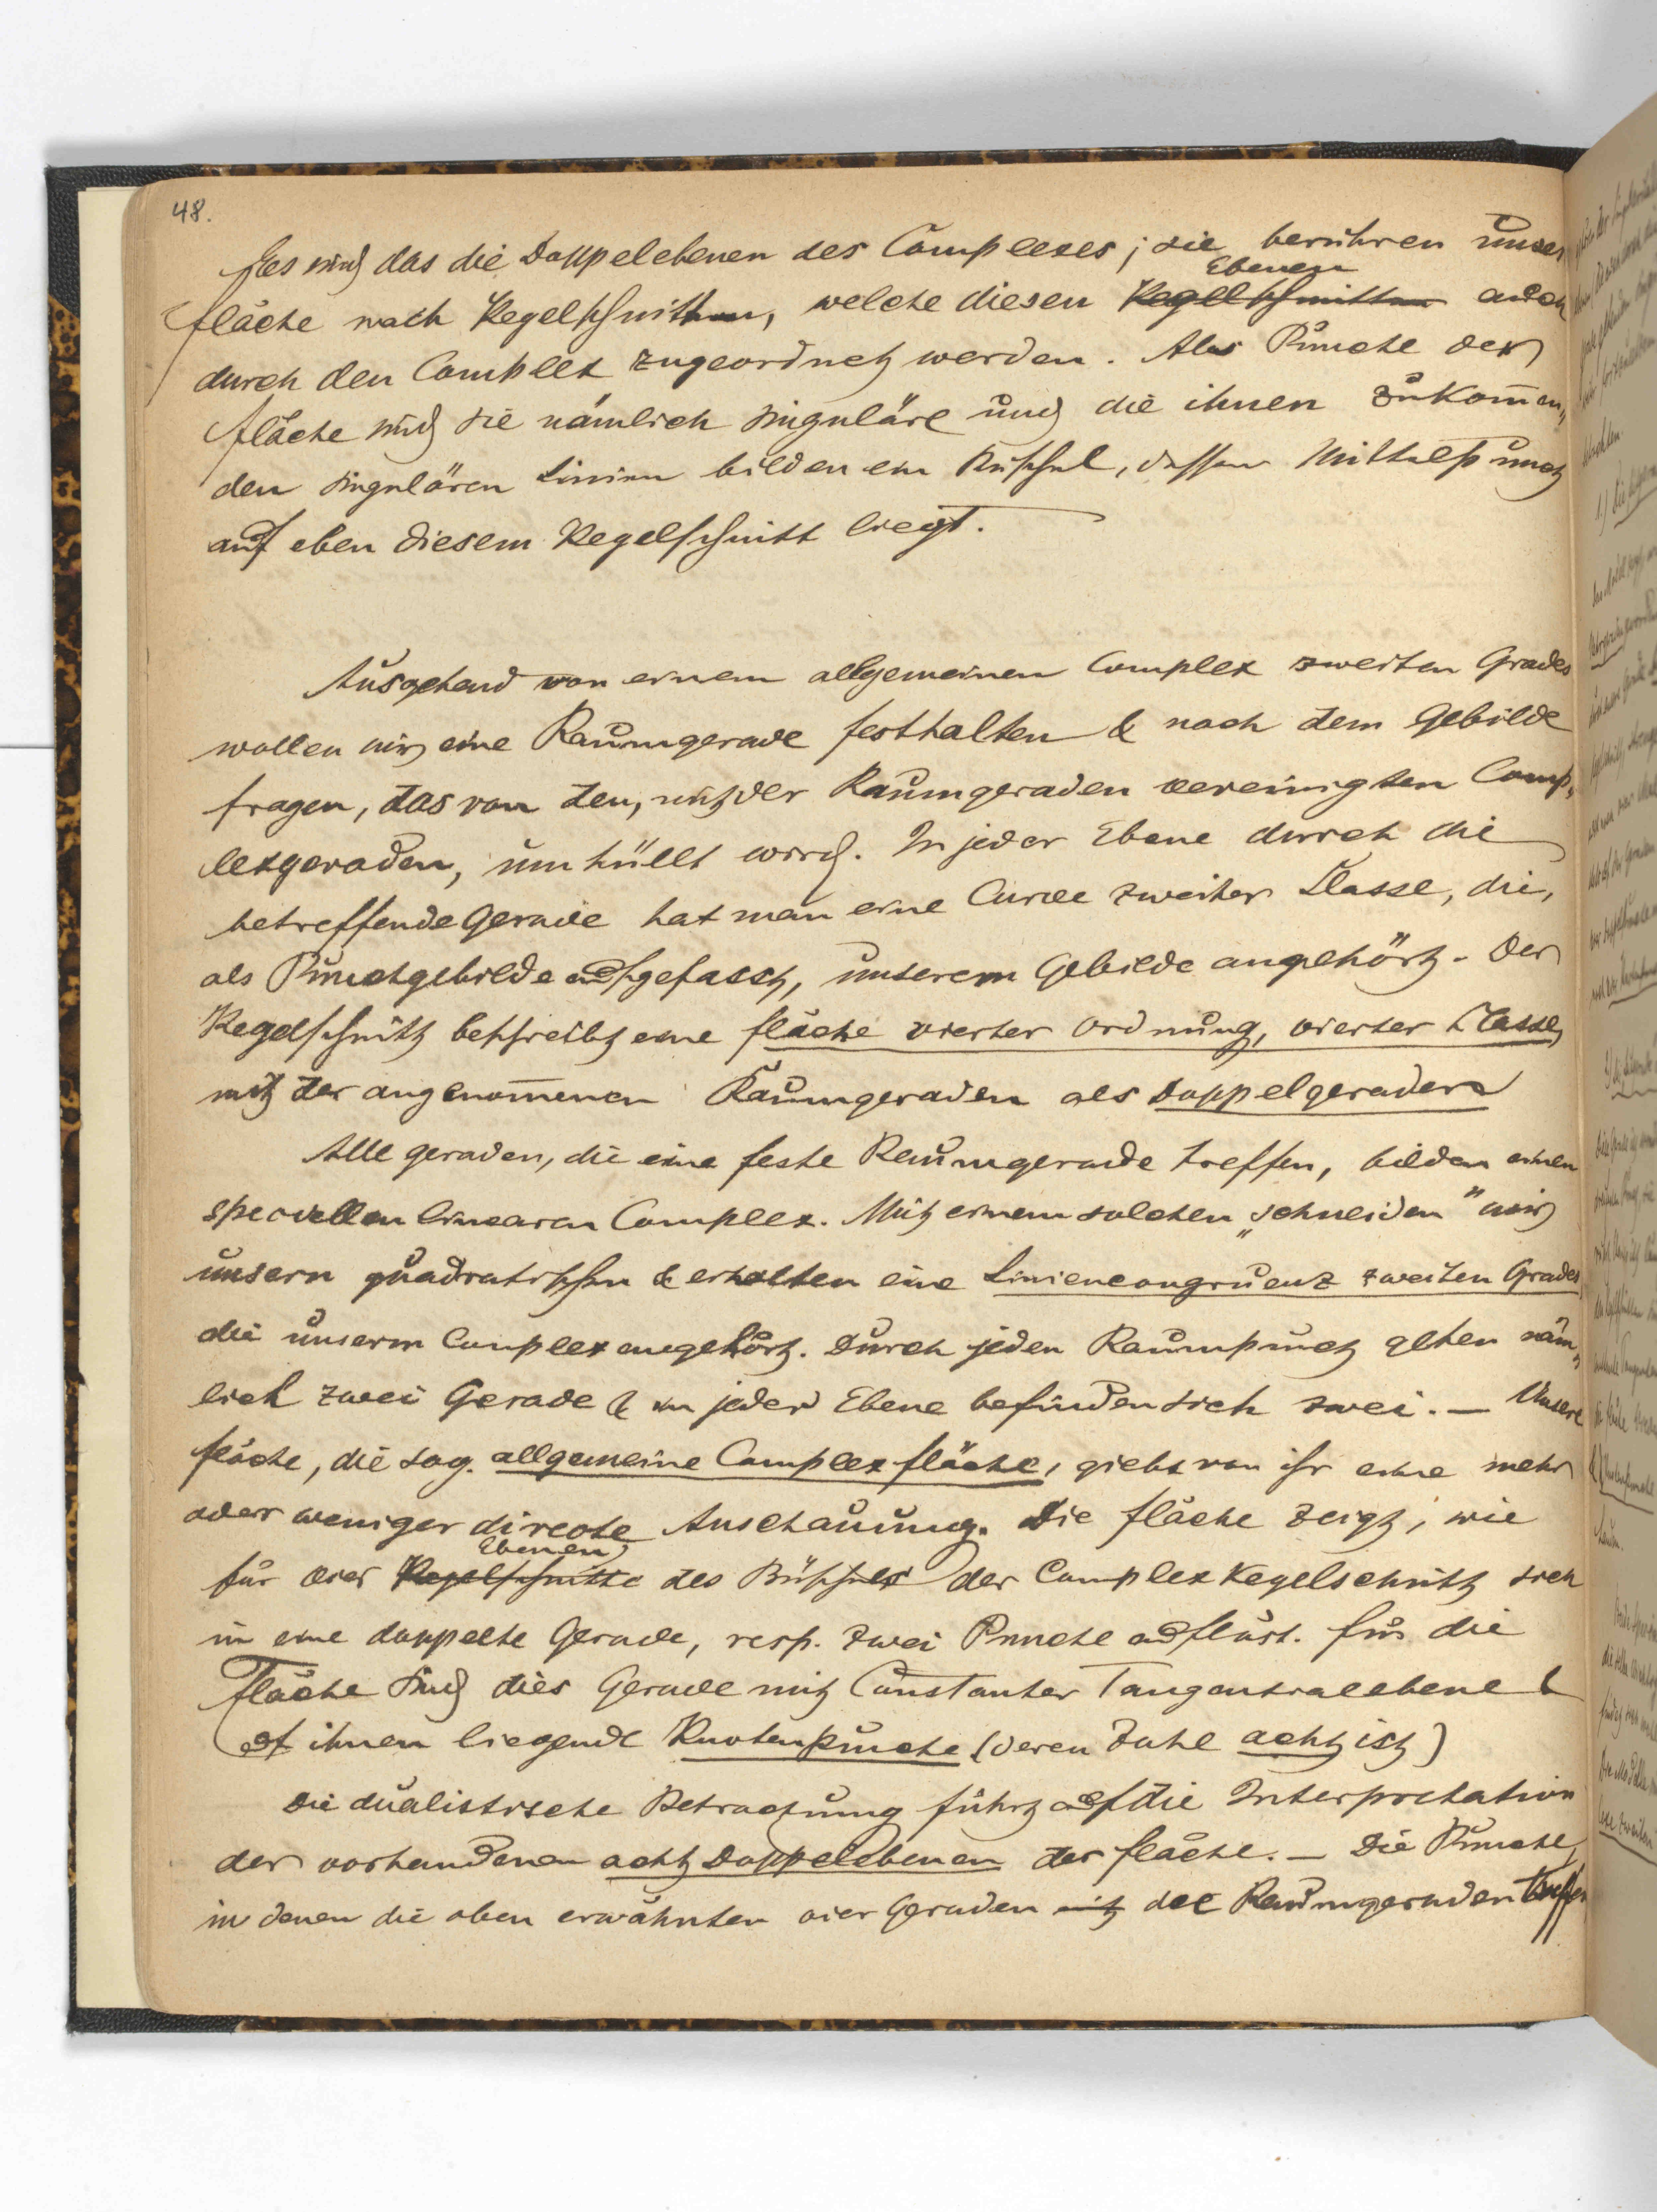 48.
Es sind das die Doppelebenen des Complexes; sie berühren unsere
Fläche nach Kegelschnitten, welche diesen Kegelschnitten Ebenen auch
durch den Complex zugeordnet werden. Als Puncte der
Fläche sind sie nämlich singuläre und die ihnen zukom̄en„
den singulären Linien bilden ein Büschel, dessen Mittelpunct
auf eben diesem Kegelschnitt liegt.
Ausgehend von einem allgemeinen Complex zweiten Grades
wollen wir eine Raumgerade festhalten & nach dem Gebilde
fragen, das von den, mit der Raumgeraden vereinigten Comp„
lexgeraden, umhüllt wird. In jeder Ebene durch die
betreffende Gerade hat man eine Curve zweiter Classe, die,
als Punctgebilde aufgefasst, unserem Gebilde angehört. Der
Kegelschnitt beschreibt eine Fläche vierter Ordnung, vierter Classe,
mit der angenom̄enen Raumgeraden als Doppelgeraden
Alle Geraden, die eine feste Raumgerade treffen, bilden einen
speciellen linearen Complex. Mit einem solchen „schneiden" wir
unsern quadratischen & erhalten eine Liniencongruenz zweiten Grades
die unserm Complex angehört. Durch jeden Raumpunct gehen näm„
lich zwei Gerade & in jeder Ebene befinden sich zwei. — Unsere
Fläche, die sog. allgemeine Complexfläche, giebt von ihr eine mehr
oder weniger directe Anschauung. Die Fläche zeigt, wie
für vier Kegelschnitte Ebenen des Büschels der Complexkegelschnitt sich
in eine doppelte Gerade, resp. zwei Puncte auflöst. Für die
Fläche sind dies Gerade mit constanter Tangentialebene &
auf ihnen liegende Knotenpuncte (deren Zahl acht ist)
Die dualistische Betrachtung führt auf die Interpretation
der vorhandenen acht Doppelebenen der Fläche. — Die Puncte,
in denen die oben erwähnten vier Geraden mit die Raumgeraden treffen